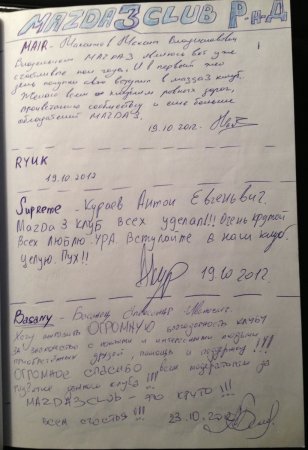 MAZDA3CLUB Р-н-Д
MAIR - Михаил Владимирович
Владельцем MAZDA3 являюсь вот уже
счастливые пол года. И в первый же
день покупки вступил в мазда3 клуб.
Желаю всем ровных дорог,
процветания сообществу и ещё больше
обладателей MAZDA3.
19.10.2012.
RYUK
19.10.2012
Supreme - Кураев Антон Евгеньевич.
Mazda 3 клуб всех уделал!!! Очень крутой
Всех люблю. УРА. Вступайте в наш клуб.
Целую. Пух!!
19.10.2012.
Basany -
Хочу выразить ОГРОМНУЮ благодарность клубу
за знакомство с новыми и интересными людьми
приобретённых друзей, помощь и поддержку!!!
ОГРОМНОЕ СПАСИБО всем модераторам за
данного клуба!!!
MAZDA3CLUB - это круто!!!
всем счастья!!! 23.10.2012